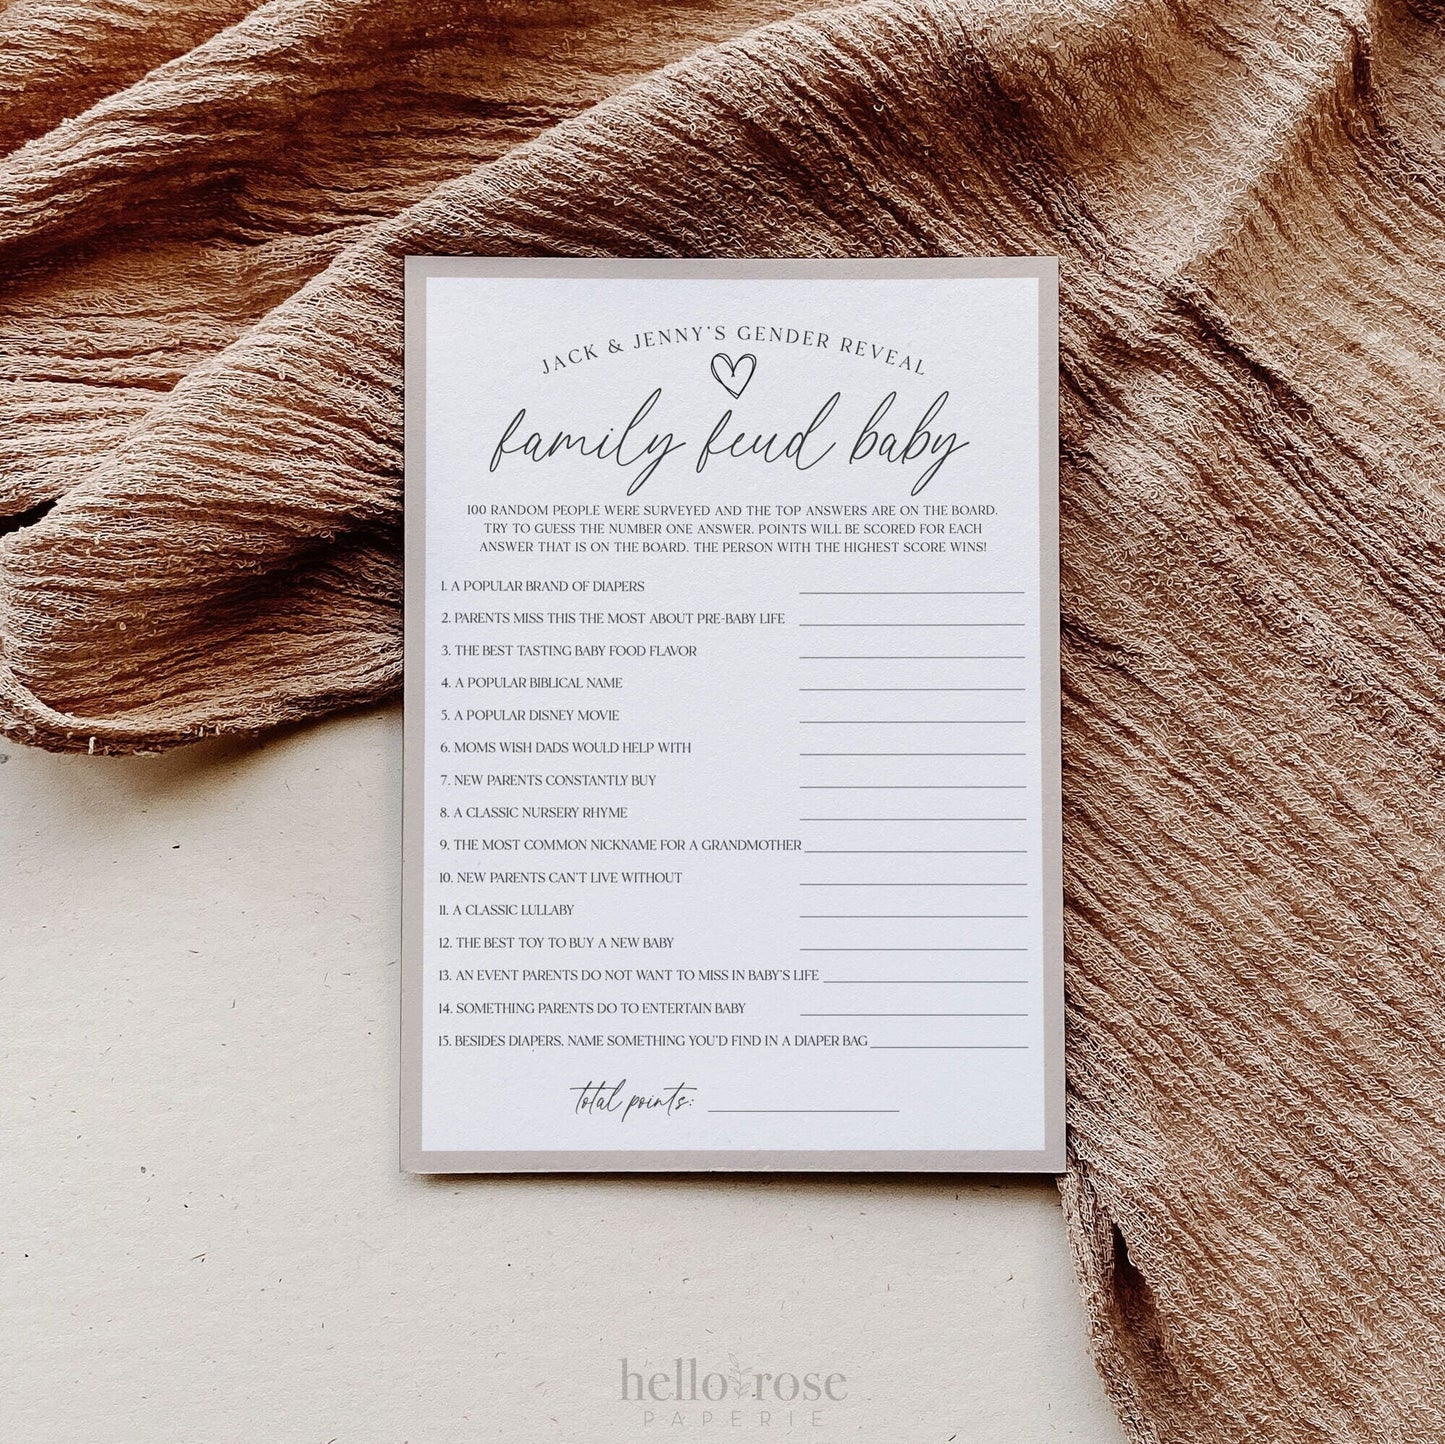 JACK & JENNY'S GENDER REVEAL
family feud baby
100 RANDOM PEOPLE WERE SURVEYED AND THE TOP ANSWERS ARE ON THE BOARD.
TRY TO GUESS THE NUMBER ONE ANSWER. POINTS WILL BE SCORED FOR EACH
ANSWER THAT IS ON THE BOARD. THE PERSON WITH THE HIGHEST SCORE WINS!
1. A POPULAR BRAND OF DIAPERS
2. PARENTS MISS THIS THE MOST ABOUT PRE-BABY LIFE
3. THE BEST TASTING BABY FOOD FLAVOR
4. A POPULAR BIBLICAL NAME
5. A POPULAR DISNEY MOVIE
6. MOMS WISH DADS WOULD HELP WITH
7. NEW PARENTS CONSTANTLY BUY
8. A CLASSIC NURSERY RHYME
9. THE MOST COMMON NICKNAME FOR A GRANDMOTHER
10. NEW PARENTS CAN'T LIVE WITHOUT
11. A CLASSIC LULLABY
12. THE BEST TOY TO BUY A NEW BABY
13. AN EVENT PARENTS DO NOT WANT TO MISS IN BABY'S LIFE
14. SOMETHING PARENTS DO TO ENTERTAIN BABY
15. BESIDES DIAPERS, NAME SOMETHING YOU'D FIND IN A DIAPER BAG
total points:
hello rose
PAPERIE